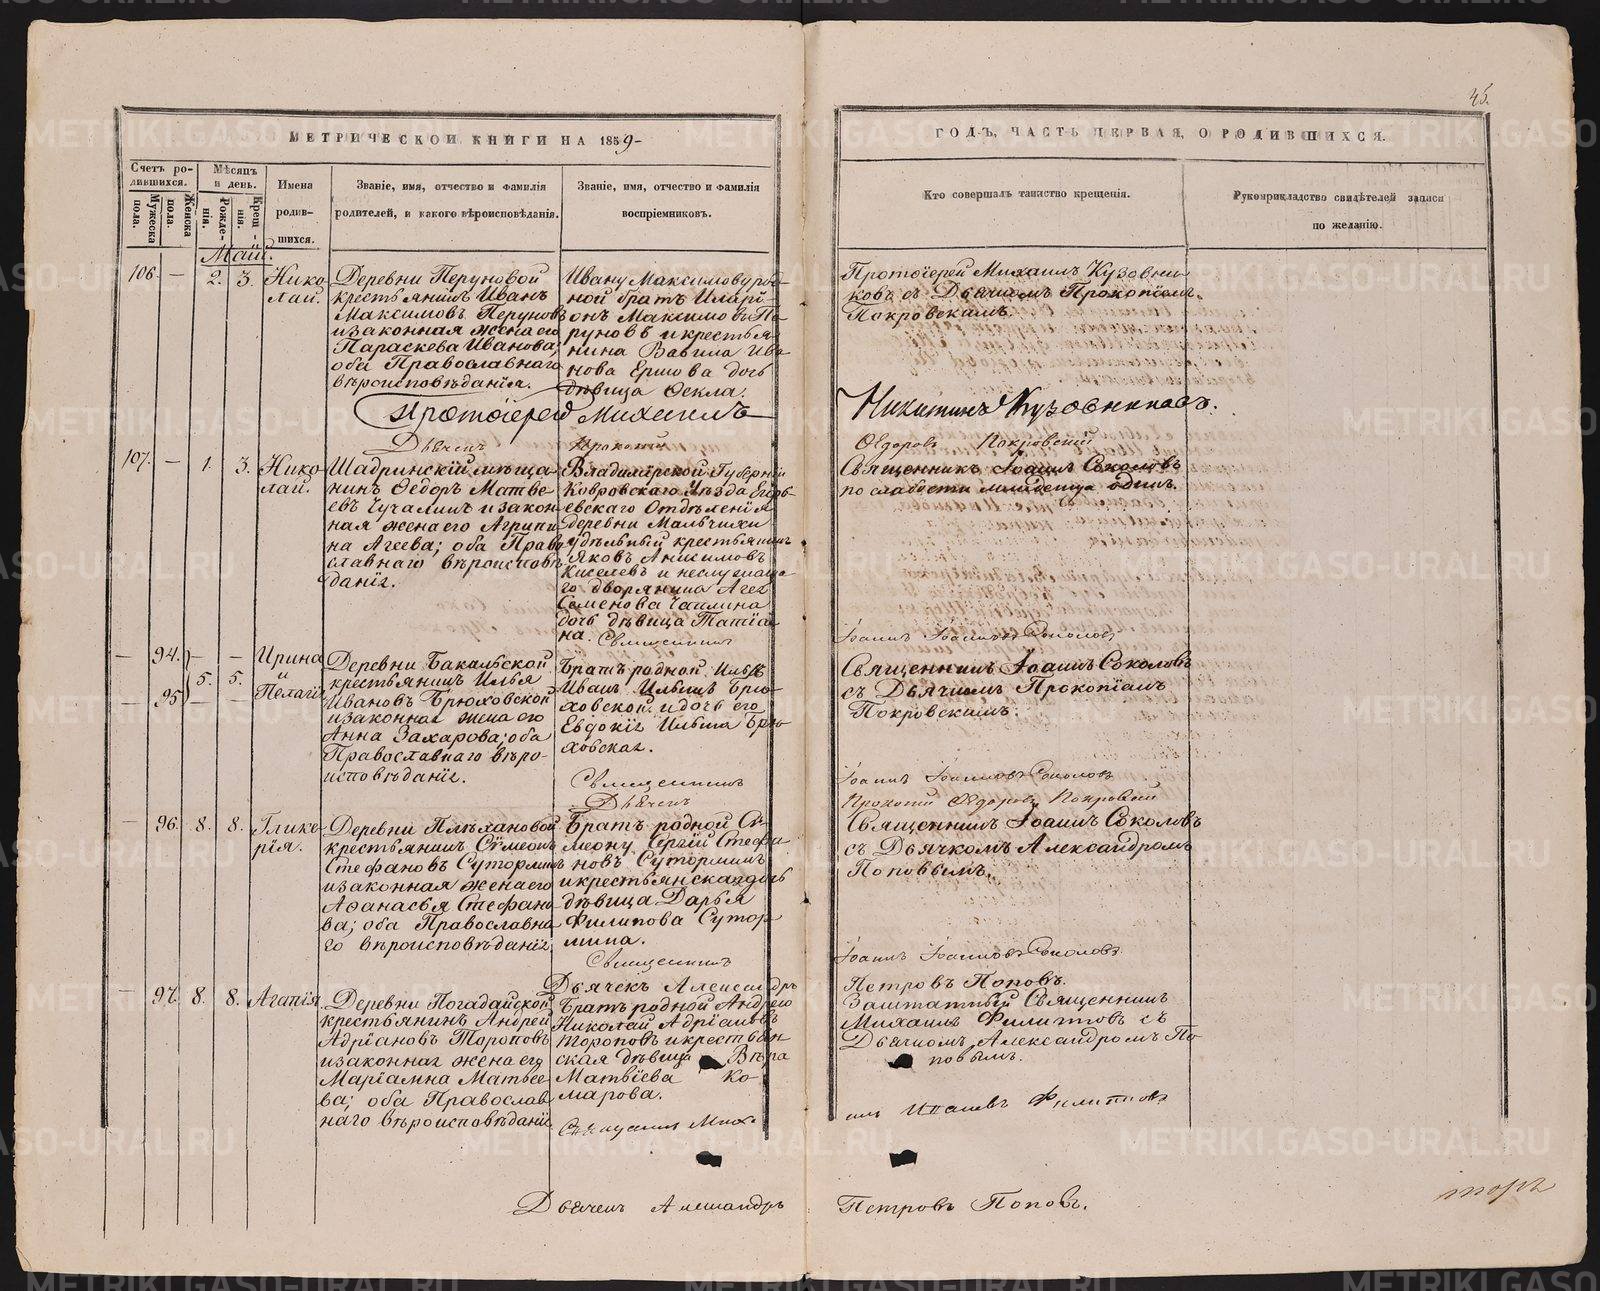 45.
МЕТРИЧЕСКОЙ КНИГИ НА 1859-
ГОДЪ, ЧАСТЬ ПЕРВАЯ, О РОДИВШИХСЯ.
Счетъ родившихся.
Мужеска пола.
Женска пола.
Мѣсяцъ и день.
Рожденія.
Крещенія.
Имена родившихся.
Званіе, имя, отчество и фамилія родителей, и какого вѣроисповѣданія.
Званіе, имя, отчество и фамилія воспріемниковъ.
Кто совершалъ таинство крещенія.
Рукоприкладство свидѣтелей записи по желанію.
Май.
106. — 2. 3. Нико-
лай.
Деревни Перуновой
крестьянинъ Иванъ
Максимовъ Перуновъ
и законная жена его
Параскева Иванова;
оба Православнаго
вѣроисповѣданія.
Ивану Максимову род-
ной братъ Иларі-
онъ Максимовъ Пе-
руновъ и крестья-
нина Вавила Ива-
нова Ершова дочь
дѣвица Ѳекла.
Протоіерей Михаилъ Кузовни-
ковъ съ Дьячкомъ Прокопіемъ
Покровскимъ.
Протоіерей Михаилъ
Никитинъ Кузовниковъ.
Дьячек Прокопий
Ѳедоровъ Покровский
107. — 1. 3. Нико-
лай.
Шадринскій мѣща-
нинъ Ѳедоръ Матве-
евъ Чучалинъ и закон-
ная жена его Агрипи-
на Агеева; оба Право-
славнаго вѣроисповѣ-
данія.
Владимірской Губерніи
Ковровскаго Уѣзда Егорь-
евскаго Отдѣленія
деревни Мальчихи
удѣльный крестьянинъ
Яковъ Анисимовъ
Киселевъ и неслужаща-
го дворянина Агея
Семенова Чаплина
дочь дѣвица Татіа-
на.
Священникъ Іоаннъ Соколовъ
по слабости младенца одинъ.
Священникъ
Іоаннъ Іоанновъ Соколовъ
— 94. — — Ирина
и
5. 5.
— 95. — — Пелагія
Деревни Бакальской
крестьянинъ Илья
Ивановъ Брюховской
и законная жена его
Анна Захарова; оба
Православнаго вѣро-
исповѣданія.
Братъ родной Ильѣ
Иванъ Ильинъ Брю-
ховской и дочь его
Евдокія Ильина Брю-
ховская.
Священникъ Іоаннъ Соколовъ
съ Дьячкомъ Прокопіемъ
Покровскимъ.
Священникъ
Іоаннъ Іоанновъ Соколовъ
Дьячекъ
Прокопій Ѳедоровъ Покровский
— 96. 8. 8. Глике-
рія.
Деревни Плѣхановой
крестьянинъ Сѷмеонъ
Стефановъ Суторминъ
и законная жена его
Аѳанасья Стефано-
ва; оба Православна-
го вѣроисповѣданія.
Братъ родной Си-
меону Сергій Стефа-
новъ Суторминъ
и крестьянская дочь
дѣвица Дарья
Филипова Сутор-
мина.
Священникъ Іоаннъ Соколовъ
съ Дьячкомъ Александромъ
Поповымъ.
Священникъ
Іоаннъ Іоанновъ Соколовъ
Дьячекъ Александръ
Петровъ Поповъ.
— 97. 8. 8. Агапія
Деревни Погадайской
крестьянинъ Андрей
Адріановъ Тороповъ
и законная жена его
Маріамна Матвее-
ва; оба Православ-
наго вѣроисповѣданія
Братъ родной Андрею
Николай Адріановъ
Тороповъ и крестьян-
ская дѣвица Вѣра
Матвіева Ко-
марова.
Заштатный Священникъ
Михаилъ Филипповъ съ
Дьячкомъ Александромъ По-
повымъ.
Филипповъ
Дьячекъ Александръ
Петровъ Поповъ.